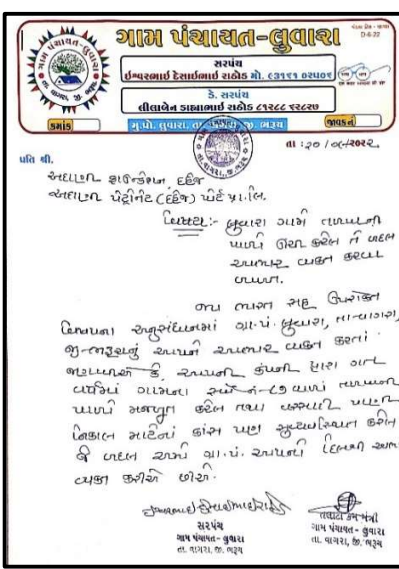 ગામ પંચાયત-લુવારા
સરપંચ
ઈશ્વરભાઈ દેસાઈભાઈ રાઠોડ મો.
ડે. સરપંચ
લીલાબેન ડાહ્યાભાઈ રાઠોડ
ક્રમાંક
મુ.પો. લુવારા, તા. જી. ભરૂચ
જાવક નં
તા :૨૦
પ્રતિ શ્રી.
અદાણી ફાઉન્ડેશન દહેજ
અદાણી પેટ્રોનેટ (દહેજ) પોર્ટ પ્રા.લિ.
વિષય:- લુવારા ગામે તળાવની
પાળી ઊંચી કરેલ તે બદલ
આભાર વ્યક્ત કરવા
બાબત.
જય ભારત સહ ઉપરોક્ત
વિષયના અનુસંધાનમાં ગ્રા.પં. લુવારા, તા-વાગરા,
જી-ભરૂચનું આપને આભાર વ્યક્ત કરતાં
જણાવીએ કે, આપની કંપની દ્વારા ગત
વર્ષમાં ગામના સર્વે નં-૮૭ વાળાં તળાવની
પાળી મજબુત કરેલ તથા વરસાદી પાણી
નિકાલ માટેનાં કાંસ પણ સુવ્યવસ્થિત કરેલ
જે બદલ અમો ગ્રા.પં. આપની દિલથી આભાર
વ્યક્ત કરીએ છીએ.
સરપંચ
ગામ પંચાયત - લુવારા
તા. વાગરા, જી. ભરૂચ
તલાટી કમ મંત્રી
ગામ પંચાયત - લુવારા
તા. વાગરા, જી. ભરૂચ